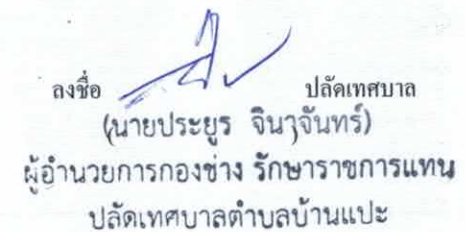 ลงชื่อ ปลัดเทศบาล
(นายประยูร จินาจันทร์)
ผู้อำนวยการกองช่าง รักษาราชการแทน
ปลัดเทศบาลตำบลบ้านแปะ